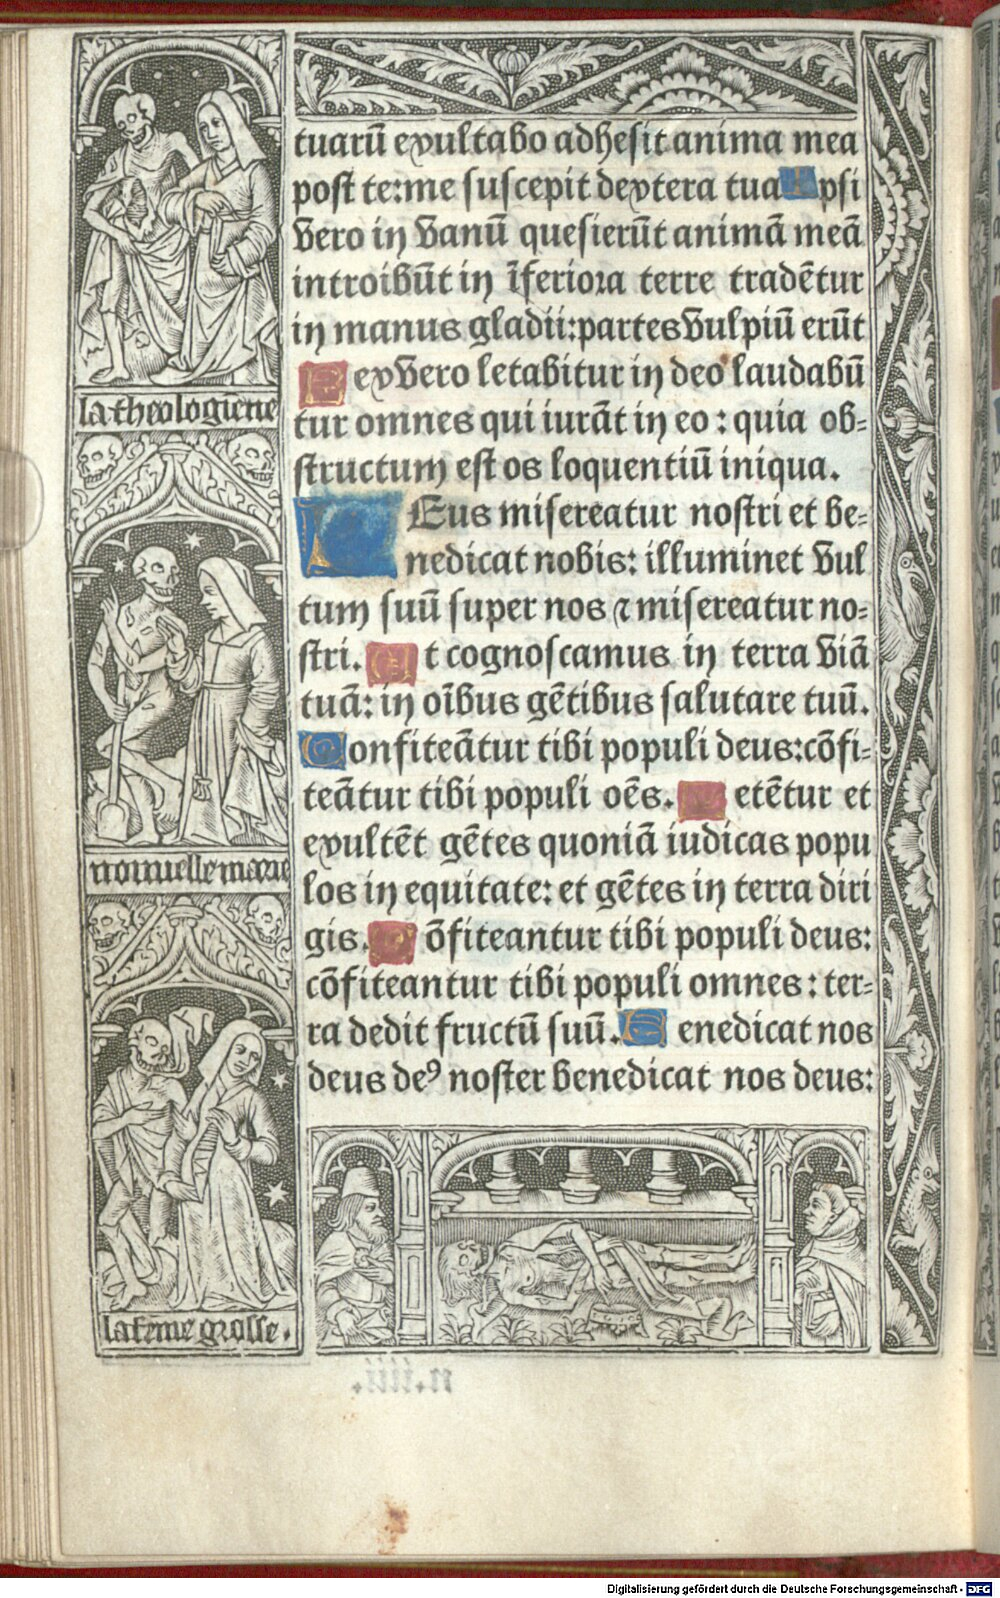 tuarū exultabo adhesit anima mea
post te: me suscepit dextera tua Ipsi
vero in vanū quesierūt animā meā
introibūt in īferiora terre tradētur
in manus gladii: partes vulpiū erūt
Rex vero letabitur in deo laudabū
tur omnes qui iurāt in eo: quia ob=
structum est os loquentiū iniqua.
DEus misereatur nostri et be=
nedicat nobis: illuminet vul
tum suū super nos ⁊ misereatur no=
stri. Et cognoscamus in terra viā
tuā: in oībus gētibus salutare tuū.
Confiteātur tibi populi deus: cōfi=
teātur tibi populi oēs. Letētur et
exultēt gētes quoniā iudicas popu
los in equitate: et gētes in terra diri
gis. Cōfiteantur tibi populi deus:
cōfiteantur tibi populi omnes: ter=
ra dedit fructū suū. Benedicat nos
deus deꝰ noster benedicat nos deus:
la theologiene
nouuelle marie
la fēme grosse.
n.iiii.
Digitalisierung gefördert durch die Deutsche Forschungsgemeinschaft - DFG